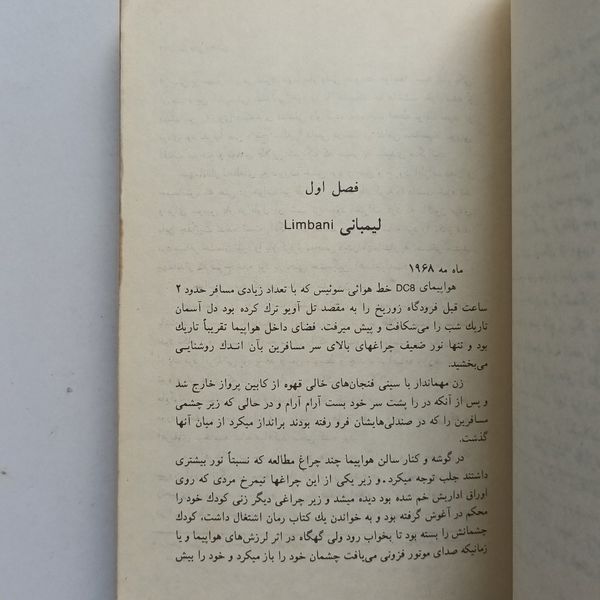 فصل اول
لیمبانی Limbani
ماه مه ۱۹۶۸
هواپیمای DC8 خط هوائی سوئیس که با تعداد زیادی مسافر حدود ۲
ساعت قبل فرودگاه زوریخ را به مقصد تل آویو ترك کرده بود دل آسمان
تاریك شب را می‌شکافت و پیش میرفت. فضای داخل هواپیما تقریباً تاریك
بود و تنها نور ضعیف چراغهای بالای سر مسافرین بآن اندك روشنایی
می‌بخشید.
زن مهماندار با سینی فنجان‌های خالی قهوه از کابین پرواز خارج شد
و پس از آنکه در را پشت سر خود بست آرام آرام و در حالی که زیر چشمی
مسافرین را که در صندلی‌هایشان فرو رفته بودند برانداز میکرد از میان آنها
گذشت.
در گوشه و کنار سالن هواپیما چند چراغ مطالعه که نسبتاً نور بیشتری
داشتند جلب توجه میکرد. و زیر یکی از این چراغها نیمرخ مردی که روی
اوراق اداریش خم شده بود دیده میشد و زیر چراغی دیگر زنی کودك خود را
محکم در آغوش گرفته بود و به خواندن یك کتاب رمان اشتغال داشت، کودك
چشمانش را بسته بود تا بخواب رود ولی گهگاه در اثر لرزش‌های هواپیما و یا
زمانیکه صدای موتور فزونی می‌یافت چشمان خود را باز میکرد و خود را بیش